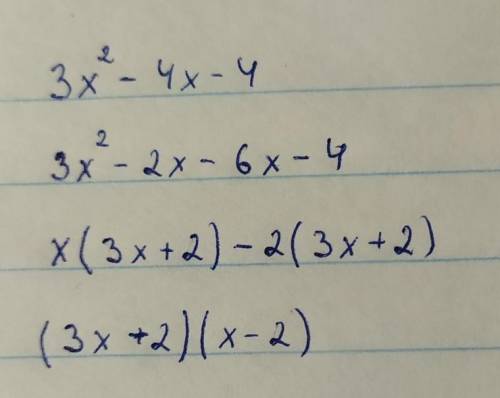 3x² - 4x - 4
3x² - 2x - 6x - 4
x(3x + 2) - 2(3x + 2)
(3x + 2)(x - 2)